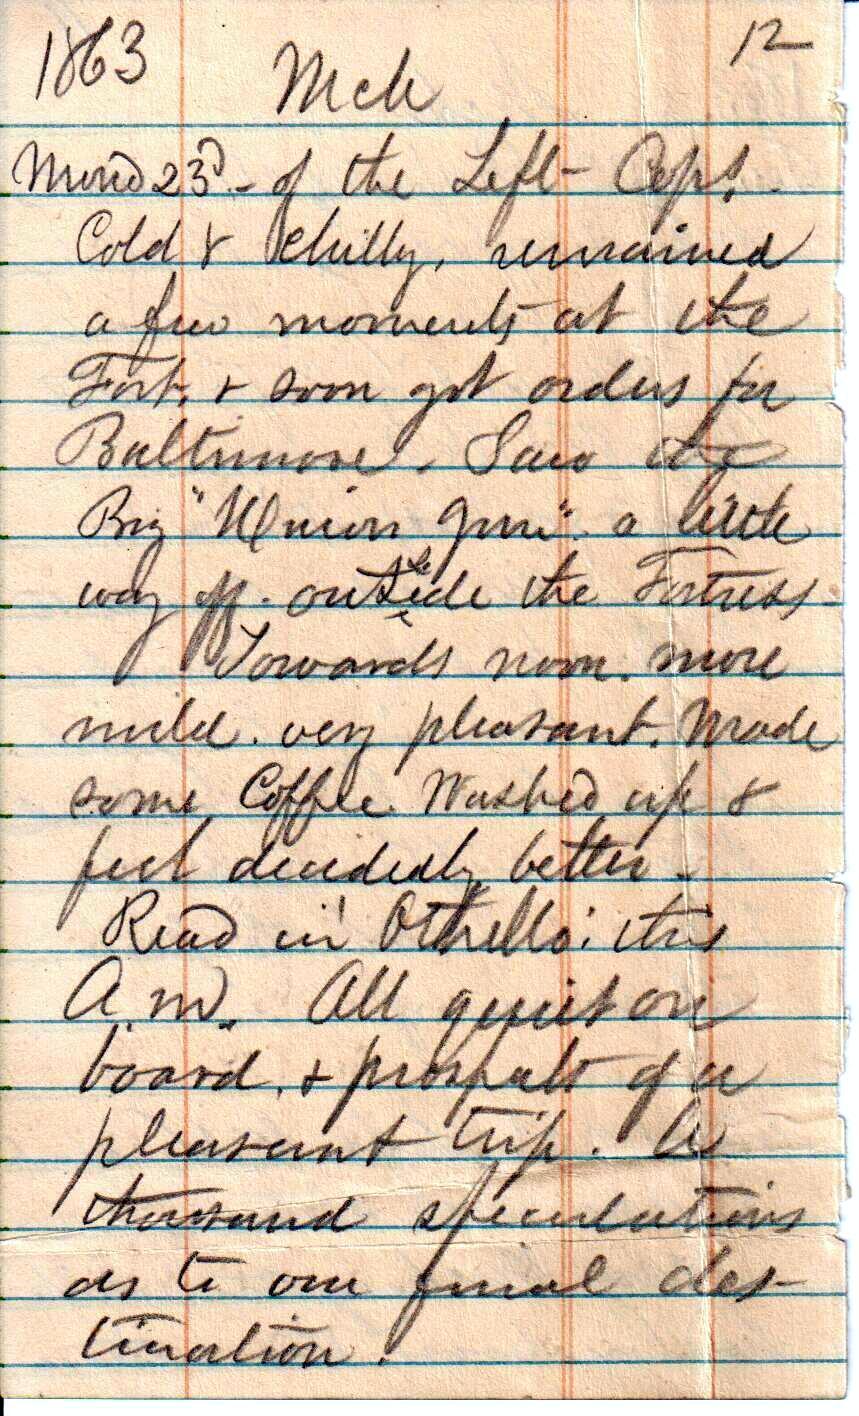 1863 Mch 12
Mond 23d - of the Left - Capt.
Cold & Chilly, remained
a few moments at the
Fort, & soon got orders for
Baltimore. Saw the
Big "Union Gun". a little
way off. outside the Fortress
Towards noon. more
mild. very pleasant. Made
some Coffee. Washed up &
feel decidedly better.
Read in 'Othello' this
A.M. All quiet on
board, & prospects of a
pleasant trip. A
thousand speculations
as to our final des-
tination.